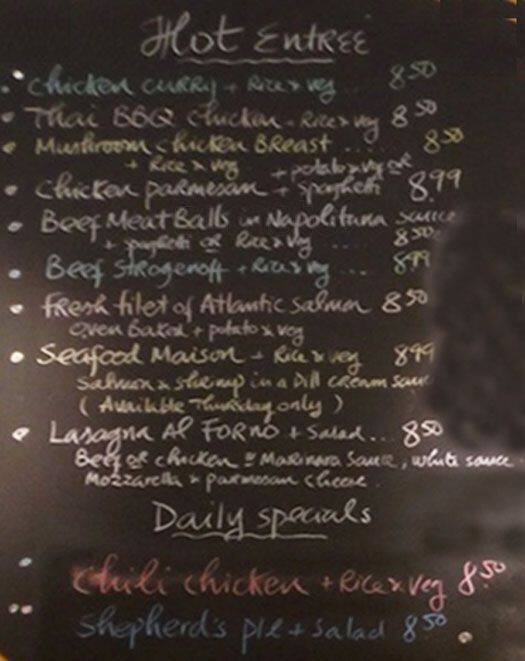 Hot Entrée
• Chicken curry + Rice & veg ... 8.50
• Thai BBQ chicken + Rice & veg 8.50
• Mushroom chicken Breast .... 8.50
+ Rice & veg
• Chicken parmesan + spaghetti + potato & veg or 8.99
• Beef Meat Balls in Napolitana sauce
+ spaghetti or Rice & veg .... 8.50
• Beef Strogenoff + Rice & veg ... 8.99
• Fresh filet of Atlantic Salmon 8.50
oven Baked + potato & veg
• Seafood Maison + Rice & veg 8.99
Salmon & shrimp in a Dill cream sauce
(Available Thursday only)
• Lasagna Al FORNO + salad... 8.50
Beef or chicken Marinara Sauce, white sauce
Mozzarella & parmesan cheese.
Daily specials
• Chili chicken + Rice & veg 8.50
•• Shepherd's pie + salad 8.50